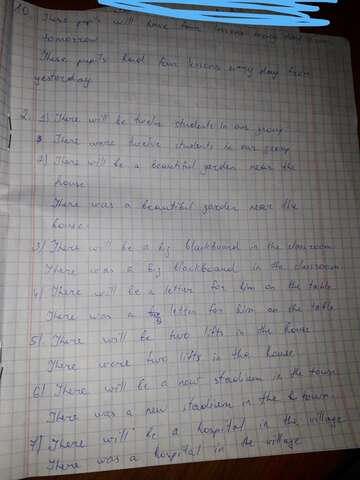 10. These pupils will have four lessons every day from
tomorrow.
These pupils had four lessons every day from
yesterday.
2. 1) There will be twelve students in our group.
There were twelve students in our group.
2) There will be a beautiful garden near the
house.
There was a beautiful garden near the
house.
3) There will be a big blackboard in the classroom.
There was a big blackboard in the classroom.
4) There will be a letter for him on the table.
There was a letter for him on the table.
5) There will be two lifts in the house.
There were two lifts in the house.
6) There will be a new stadium in the town.
There was a new stadium in the town.
7) There will be a hospital in the village.
There was a hospital in the village.